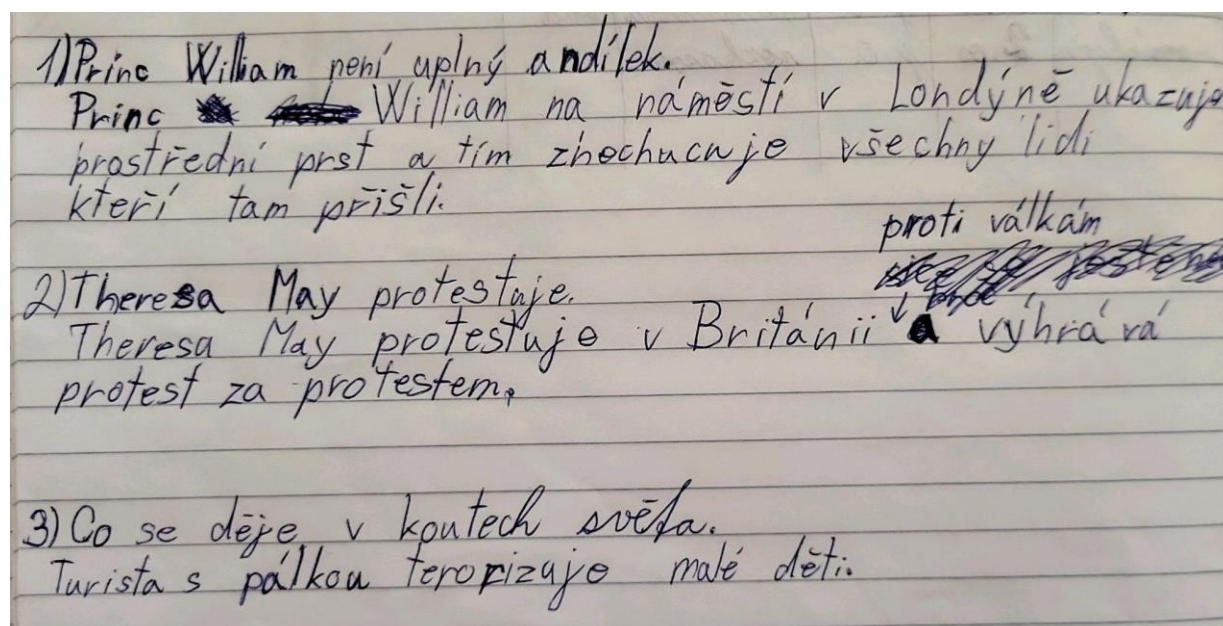 1) Princ William není uplný andílek.
Princ William na náměstí v Londýně ukazuje
prostřední prst a tím znechucuje všechny lidi
kteří tam přišli.
proti válkám
2) Theresa May protestuje.
Theresa May protestuje v Británii a výhrává
protest za protestem.
3) Co se děje v koutech světa.
Turista s pálkou terorizuje malé děti.